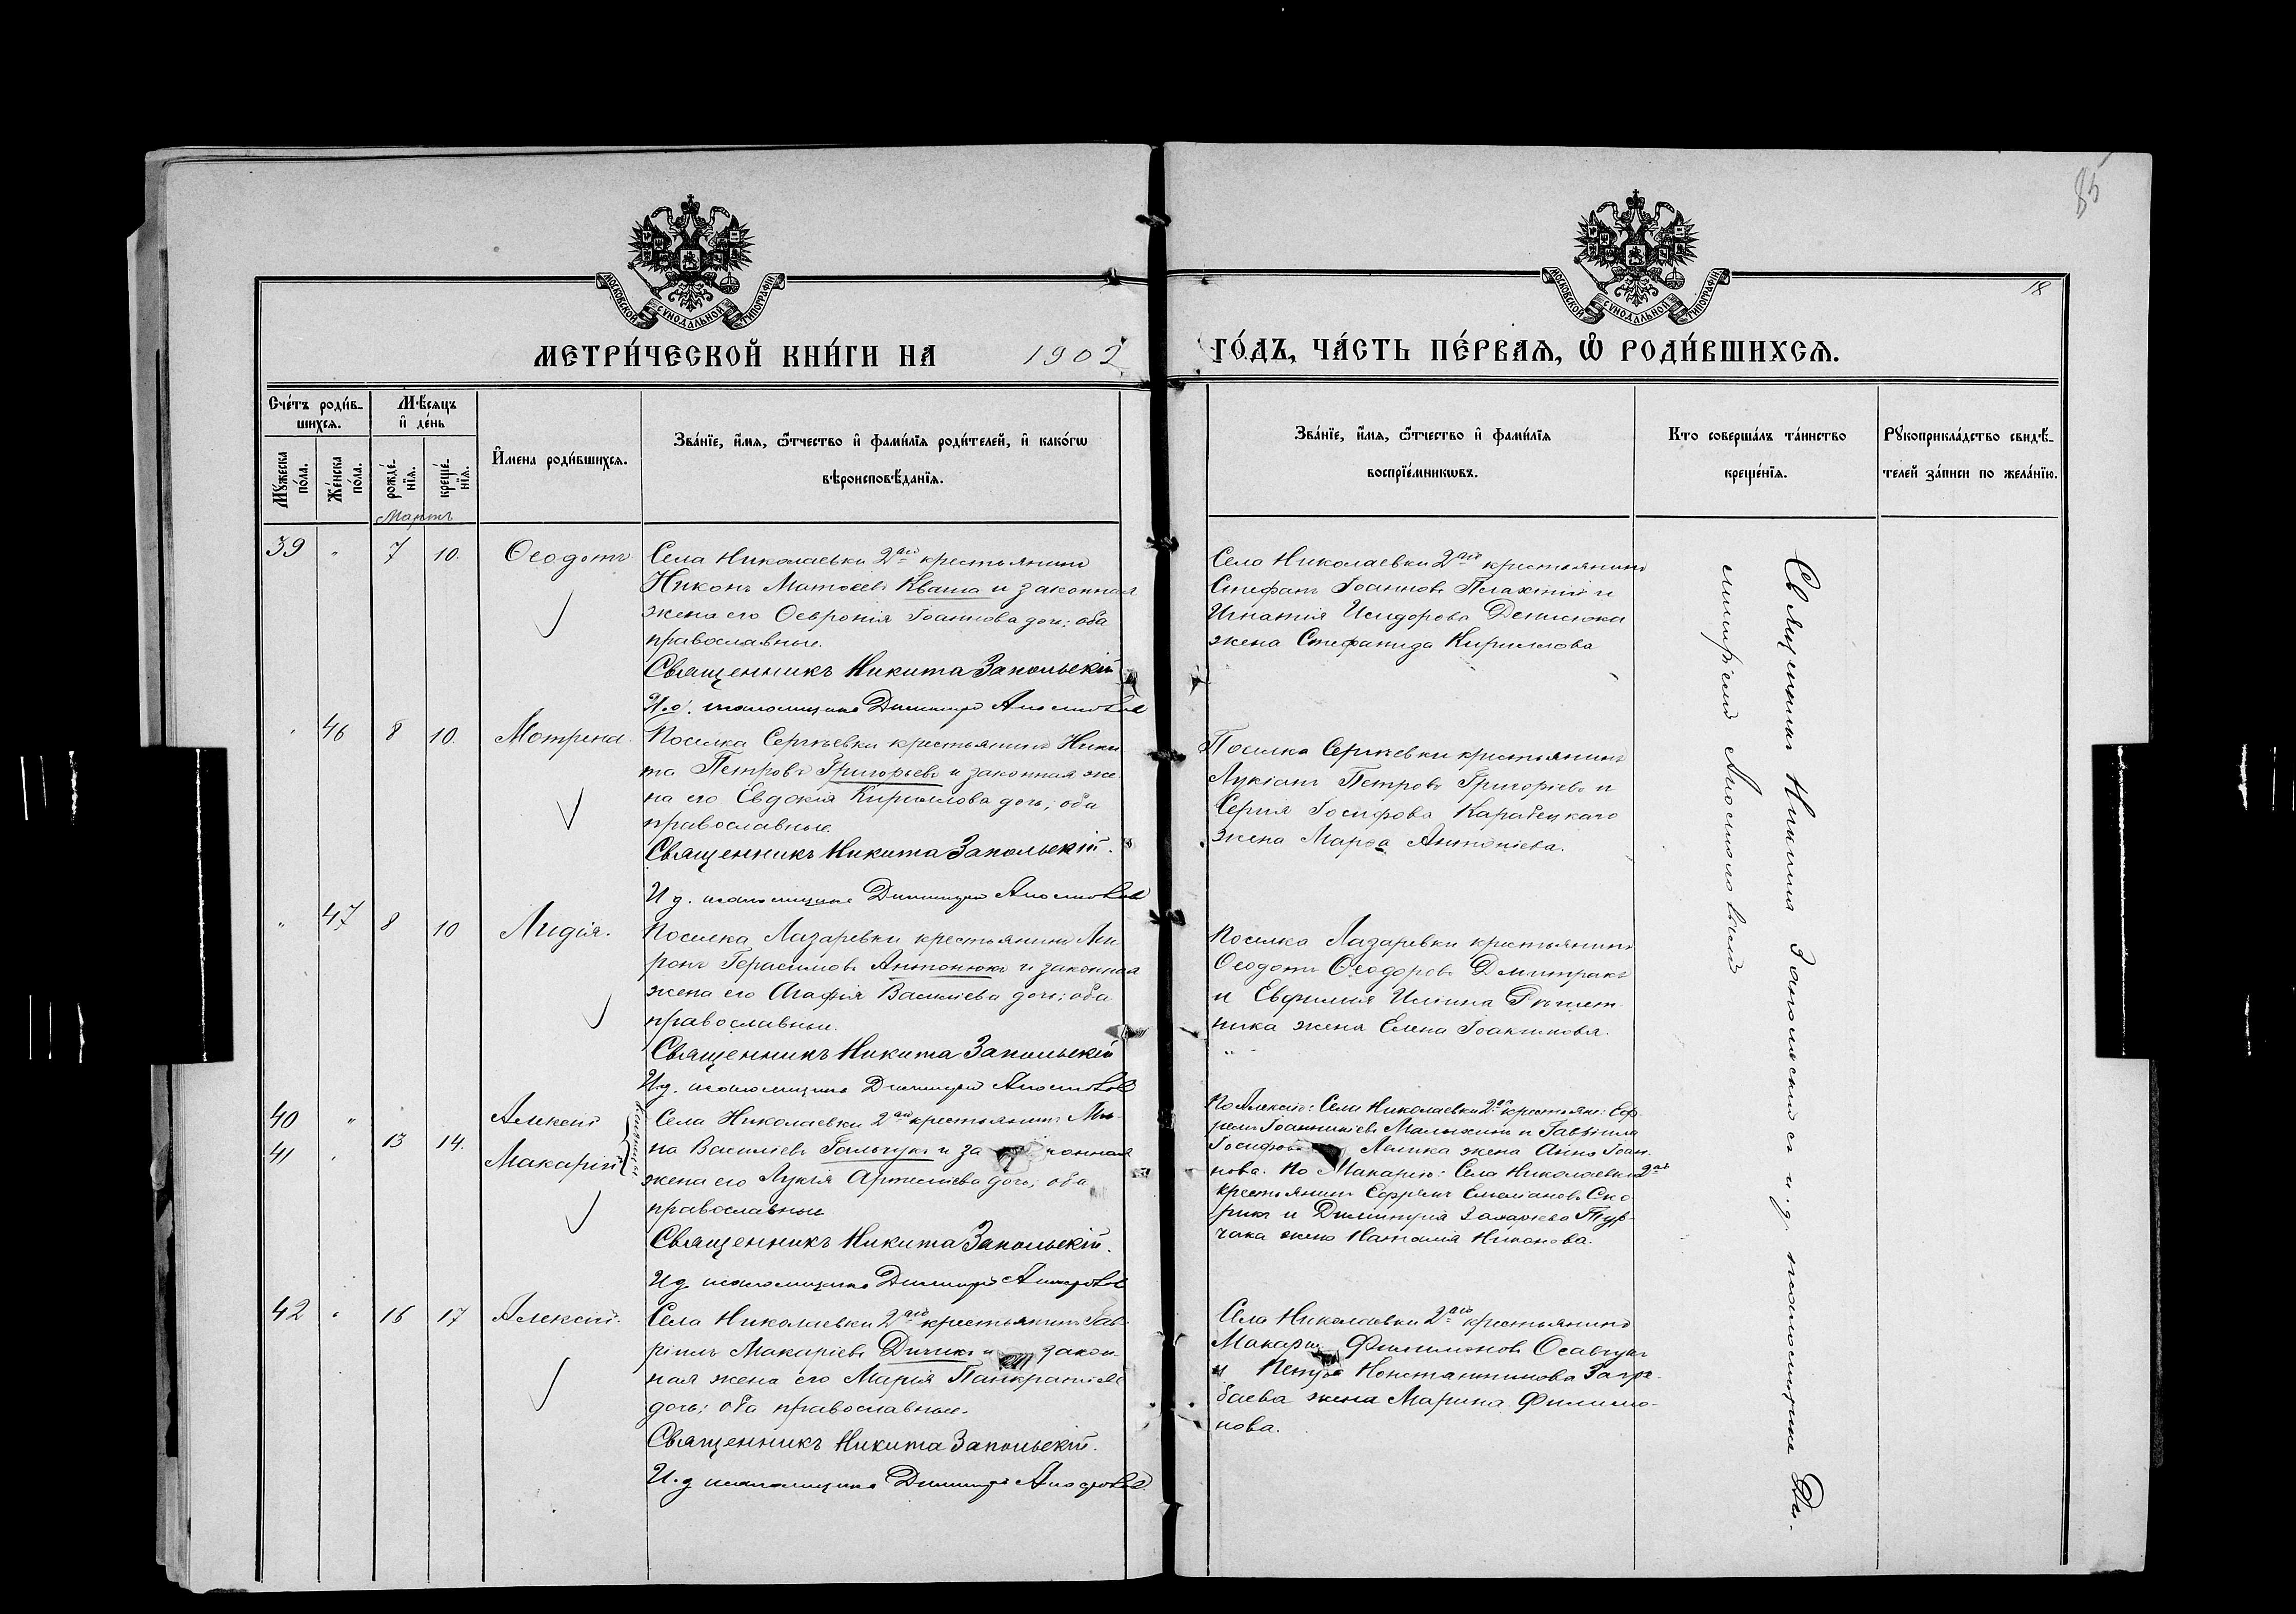 85
18
МОСКОВСКОЙ СѴНОДАЛЬНОЙ ТИПОГРАФІИ
МОСКОВСКОЙ СѴНОДАЛЬНОЙ ТИПОГРАФІИ
МЕТРИ́ЧЕСКОЙ КНИ́ГИ НА 1902 ГО́ДЪ, ЧА́СТЬ ПЕ́РВАѦ, Ѽ РОДИ́ВШИХСѦ.
Сче́тъ роди́в-
шихсѧ.
Мꙋжеска по́ла.
Же́нска по́ла.
Мѣ́сѧцъ
и҆ де́нь
рожде́-
нїѧ.
креще́-
нїѧ.
И҆мена роди́вшихсѧ.
Зва́нїе, и҆́мѧ, ѻ҆́тчество и҆ фами́лїѧ роди́телей, и҆ како́гѡ
вѣроисповѣ́данїѧ.
Зва́нїе, и҆́мѧ, ѻ҆́тчество и҆ фами́лїѧ
воспрїе́мникѡвъ.
Кто соверша́лъ та́инство
креще́нїѧ.
Рꙋкоприкла́дство свидѣ́-
телей за́писи по жела́нїю.
Мартъ
39 " 7 10. Ѳеодотъ
Села Николаевки 2аго крестьянинъ
Никонъ Матѳеевъ Кваша и законная
жена его Ѳевронія Іоаннова дочь; оба
православные.
Священникъ Никита Запольскій
И.д. псаломщика Димитрій
Села Николаевки 2аго крестьянинъ
Стефанъ Іоанновъ и
Игнатія Исидорова Денисюка
жена Стефанида Кириллова
" 46 8 10. Мотрена
Поселка Сергѣевки крестьянинъ Ники
та Петровъ Григорьевъ и законная же
на его Евдокія Кириллова дочь; оба
православные.
Священникъ Никита Запольскій.
И д. псаломщика Димитрій
Поселка Сергѣевки крестьянинъ
Лукіанъ Петровъ Григоріевъ и
Сергія Іосифова Карабецкаго
жена Марѳа Антоніева.
" 47 8 10 Лидія.
Поселка Лазаревки крестьянинъ Ми
ронъ Герасимовъ Антонюкъ и законная
жена его Агафія Василіева дочь; оба
православные.
Священникъ Никита Запольскій
И.д. псаломщика Димитрій
Поселка Лазаревки крестьянинъ
Ѳеодотъ Ѳеодоровъ Дмитракъ
и Евфимія Иліина
ника жена Елена Іоакимова.
40 " Алексій
41 " 13 14. Макарій
близнецы
Села Николаевки 2аго крестьянинъ Ми-
на Василіевъ Гольчукъ и законная
жена его Лукія Артеміева дочь; оба
православные
Священникъ Никита Запольскій.
И д. псаломщика Димитрій
По Алексію: Села Николаевки 2аго крестьяне: Еф-
ремъ и Гавріила
Іосифова жена Анна Іоан-
нова. По Макарію: Села Николаевки 2аго
крестьянинъ Ефремъ Емеліановъ Ско
рикъ и Димитрія Захаріева Тур-
чака жена Наталія Никонова.
42 " 16 17 Алексій.
Села Николаевки 2аго крестьянинъ Гав-
ріилъ Макаріевъ Дичикъ и закон-
ная жена его Марія Панкратіева
дочь; оба православные.
Священникъ Никита Запольскій.
И.д псаломщика Димитрій
Села Николаевки 2аго крестьянинъ
Макарій Филимоновъ Осавчукъ
и Петра Константинова
баева жена Марина Филимо-
нова.
Священникъ Никита Запольскій съ и.д. псаломщика Ди-
митріемъ